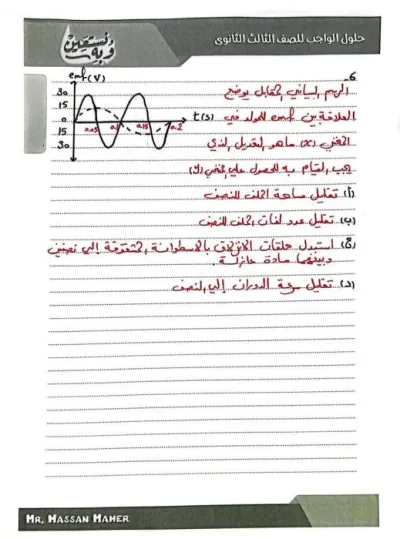 حلول الواجب للصف الثالث الثانوى
وبه نستعين
6-
الرسم البياني المقابل يوضح
العلاقة بين emf المولد في
المنحنى (x) ما هو التعديل الذي
يجب القيام به للحصول على المنحنى (y)
(أ) تقليل مساحة الملف للنصف
(ب) تقليل عدد لفات الملف للنصف
(ج) استبدل حلقات الانزلاق بالاسطوانة المشقوقة إلى نصفين
وبينهما مادة عازلة.
(د) تقليل سرعة الدوران إلى النصف
emf(V)
30
15
0
15
30
0.05
0.1
0.15
0.2
t(s)
MR. HASSAN MAHER